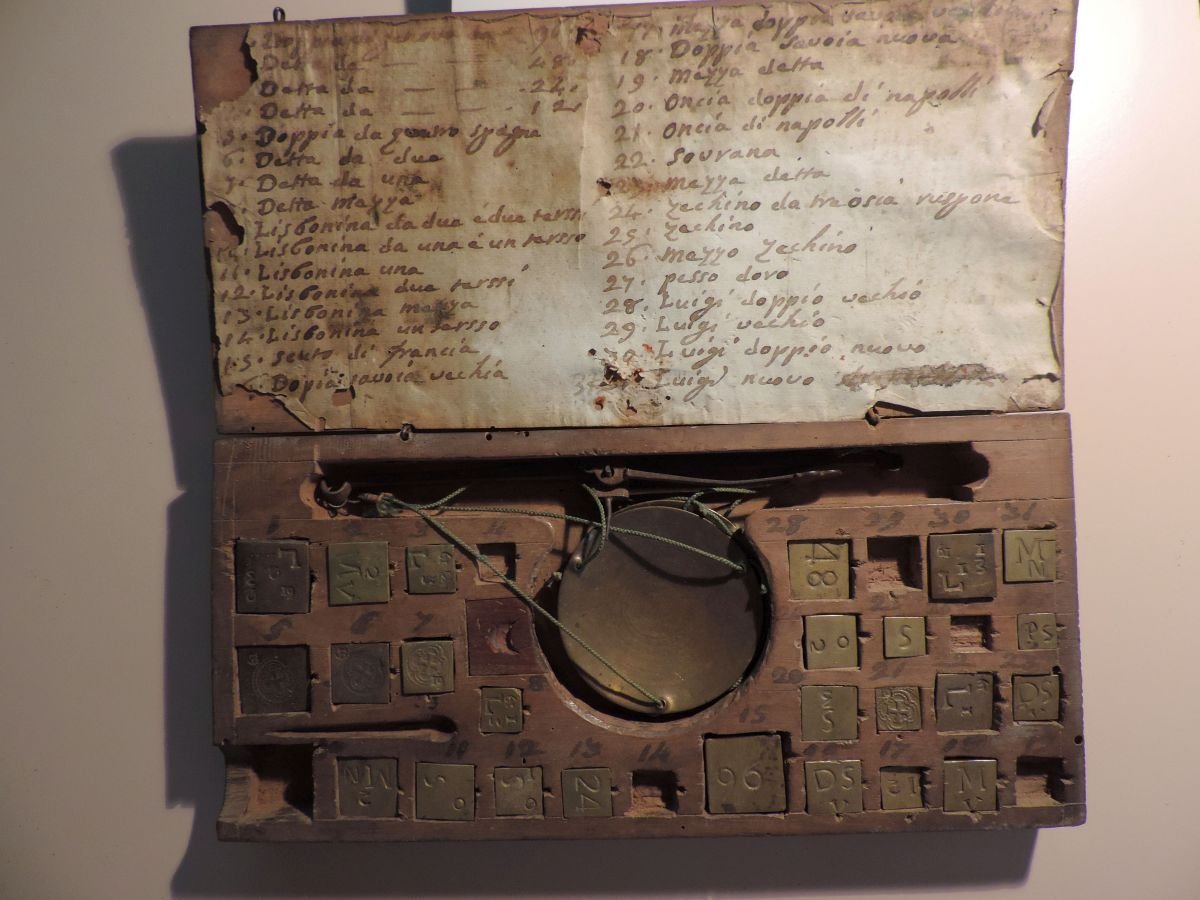 96
Detta da — — 48.
Detta da — — 24.
Detta da — — 12.
5. Doppia da quatro spagna
6. Detta da due
7. Detta da una
Detta mezza
Lisbonina da due é due terssi
Lisbonina da una é un tersso
11. Lisbonina una
12. Lisbonina due terssi
13. Lisbonina mezza
14. Lisbonina un tersso
15. scuto di francia
Dopia savoia vechia
17. mezza doppia
18. Doppia savoia nuova
19. mezza detta
20. Oncia doppia di napolli
21. Oncia di napolli
22. sovrana
23. mezza detta
24. zechino da tre òsiaruspone
25. zechino
26. mezzo zechino
27. pesso doro
28. Luigi doppio vechio
29. Luigi vechio
30. Luigi doppio nuovo
Luigi nuovo
1 2 3 4 28 29 30 31
L
48
L 13
M N
5 6 7
S
PS
8
20 21
L
S
DS
15
10 12 13 14
16 17
S
24
96
DS V
12
M V